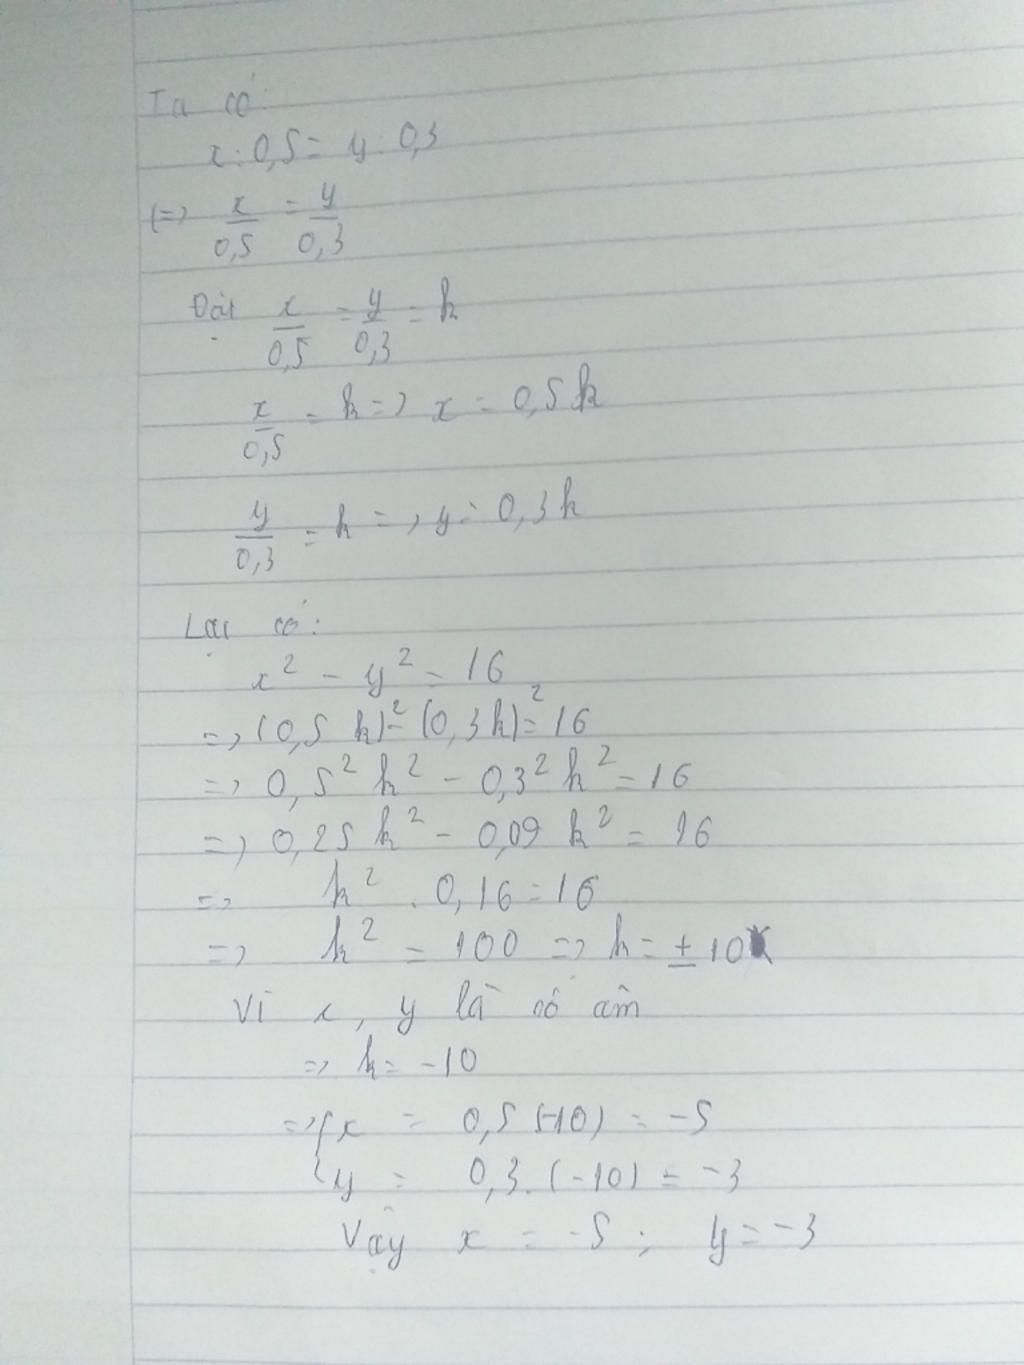 Ta có:
x : 0,5 = y : 0,3
(=> x/0,5 = y/0,3
Đặt x/0,5 = y/0,3 = k
x/0,5 = k => x = 0,5k
y/0,3 = k => y = 0,3k
Lại có:
x² - y² = 16
=> (0,5k)² - (0,3k)² = 16
=> 0,5²k² - 0,3²k² = 16
=> 0,25k² - 0,09k² = 16
=> k² . 0,16 = 16
=> k² = 100 => k = ±10
Vì x, y là số âm
=> k = -10
=> { x = 0,5 (-10) = -5
y = 0,3. (-10) = -3
Vậy x = -5 ; y = -3